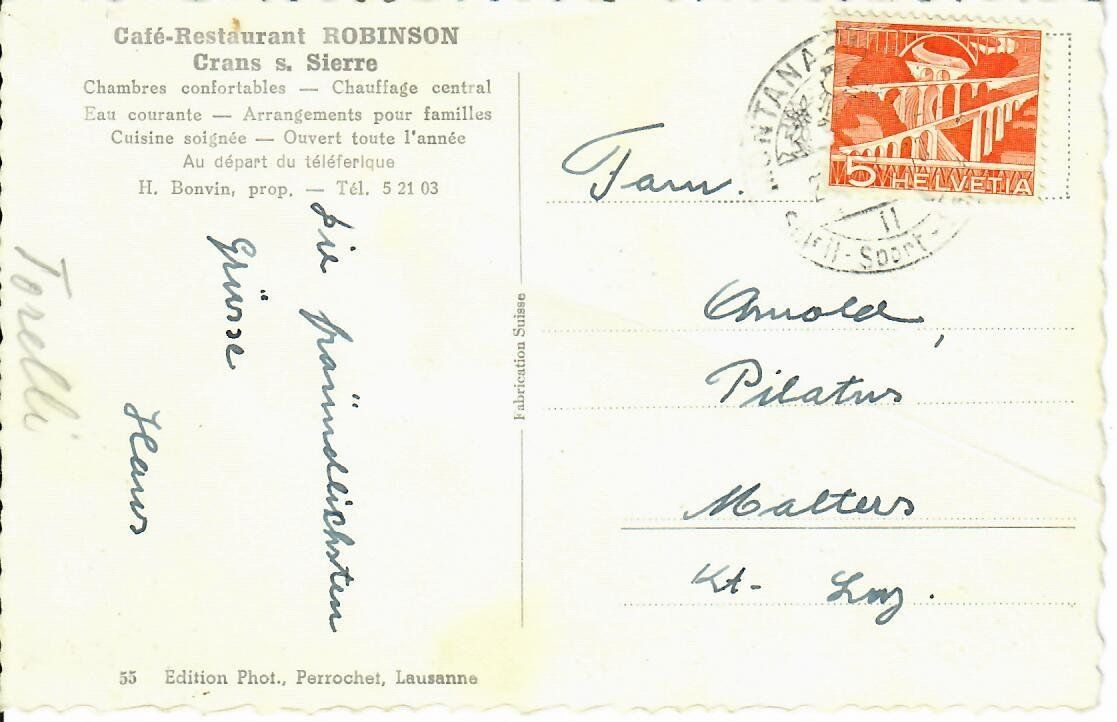 Café-Restaurant ROBINSON
Crans s. Sierre
Chambres confortables — Chauffage central
Eau courante — Arrangements pour familles
Cuisine soignée — Ouvert toute l'année
Au départ du téléferique
H. Bonvin, prop. — Tél. 5 21 03
Die fräundlichsten
Grüsse
Hans
Torelli
55 Edition Phot., Perrochet, Lausanne
Fabrication Suisse
MONTANA
11
Sport
5 HELVETIA
Fam.
Arnold,
Pilatus
Malters
Kt. Luz.